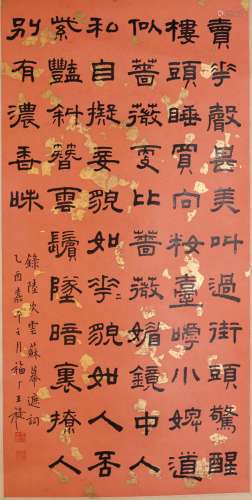 賣華聲甚美叫過街頭驚醒
樓頭睡買向粧臺嚀小婢道
似薔薇更比薔薇媚鏡中人
和自擬妾貌如華貌如人否
紫豔斜簪雲鬢墜暗裏撩人
別有濃香味
錄陸次雲蘇幕遮詞
乙酉嘉平之月福厂王禔